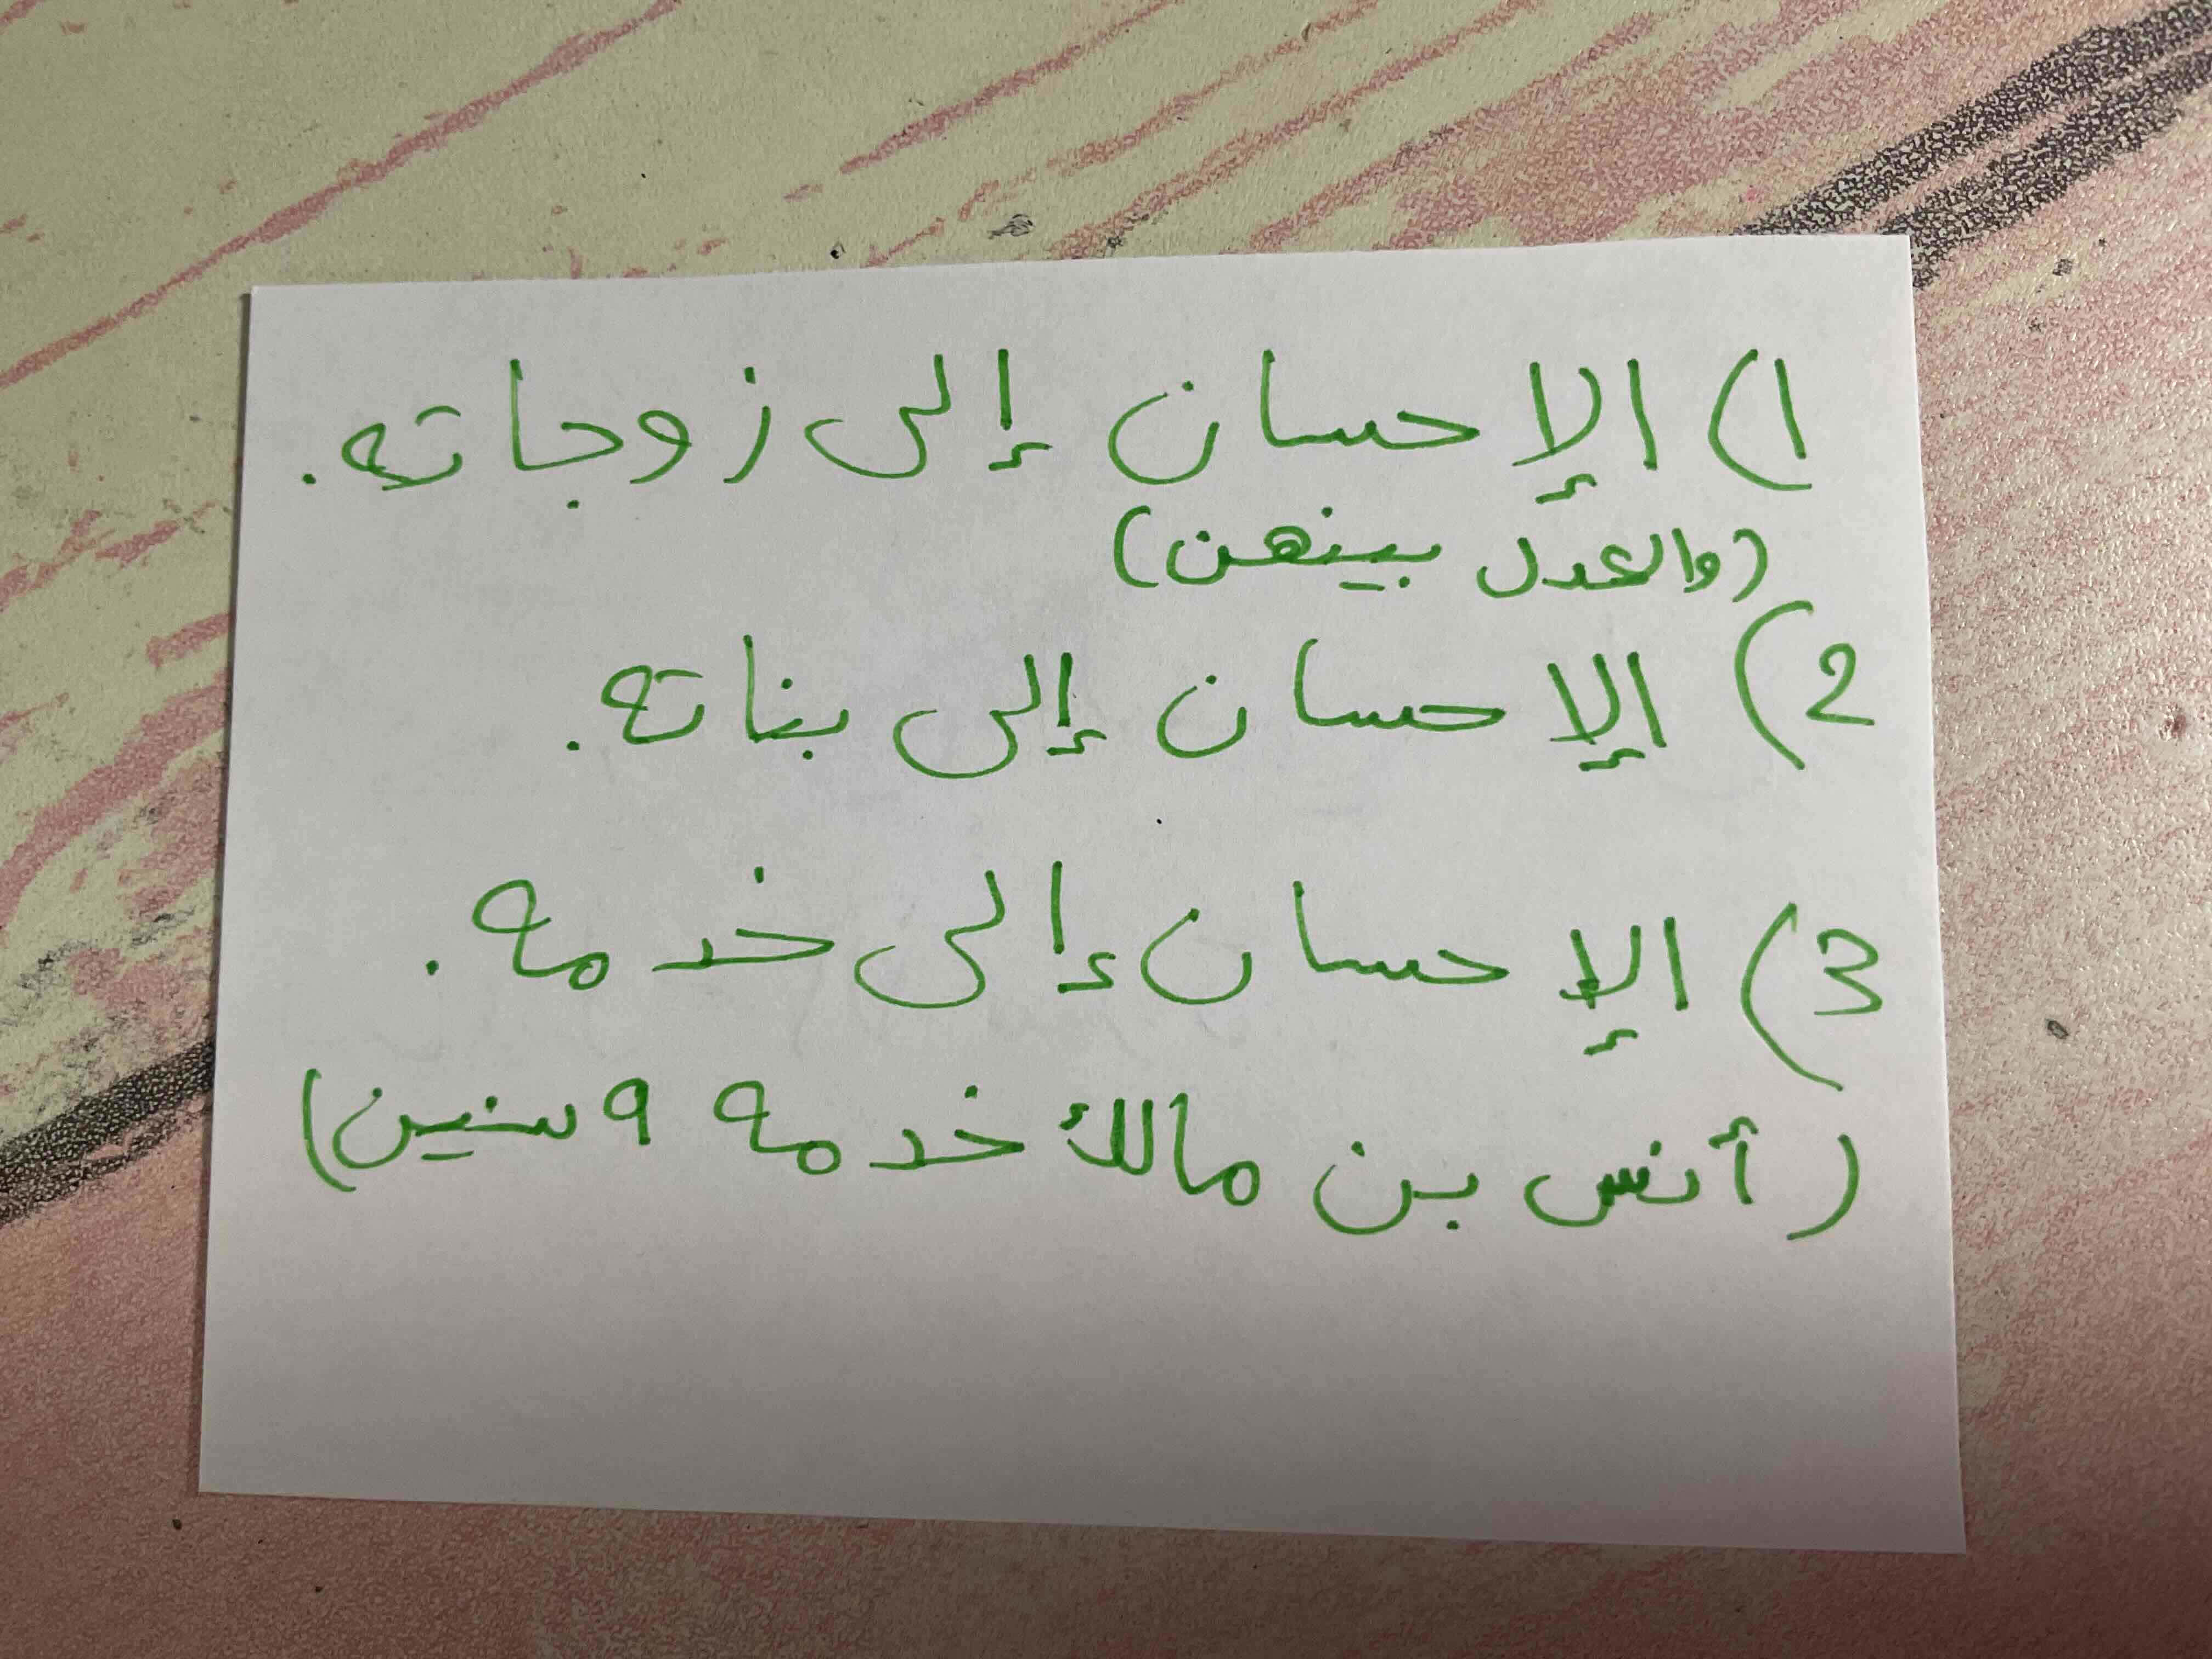 1) الإحسان إلى زوجاته.
(والعدل بينهن)
2) الإحسان إلى بناته.
3) الإحسان إلى خدمه.
(أنس بن مالك خدمه ٩ سنين)